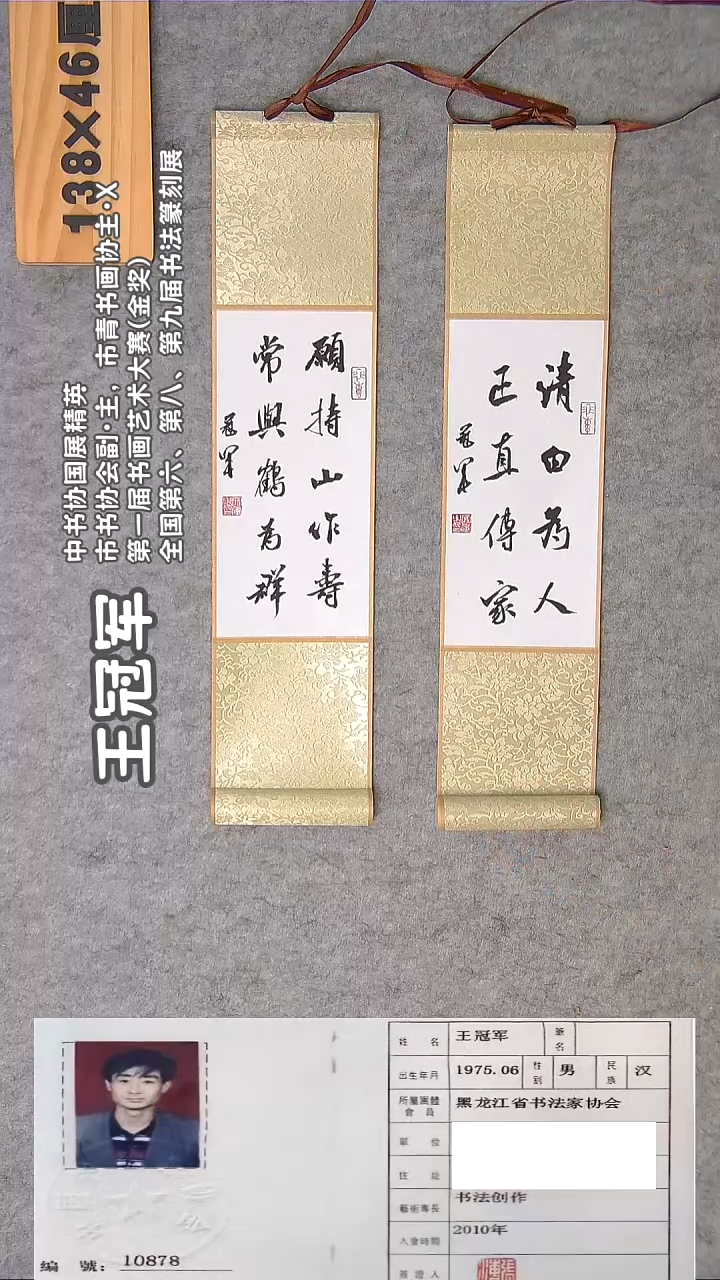 138×46厘
中书协国展精英
市书协会副·主，市青书画协主·X
第一届书画艺术大赛(金奖)
全国第六、第八、第九届书法篆刻展
王冠军
清白为人
正直傳家
冠军
願持山作壽
常與鶴为群
冠军
編 號：10878
姓 名 王冠军 筆名
出生年月 1975.06 性别 男 民族 汉
所屬團體會員 黑龙江省书法家协会
單 位
住 址
藝術專長 书法创作
入會時間 2010年
簽證人